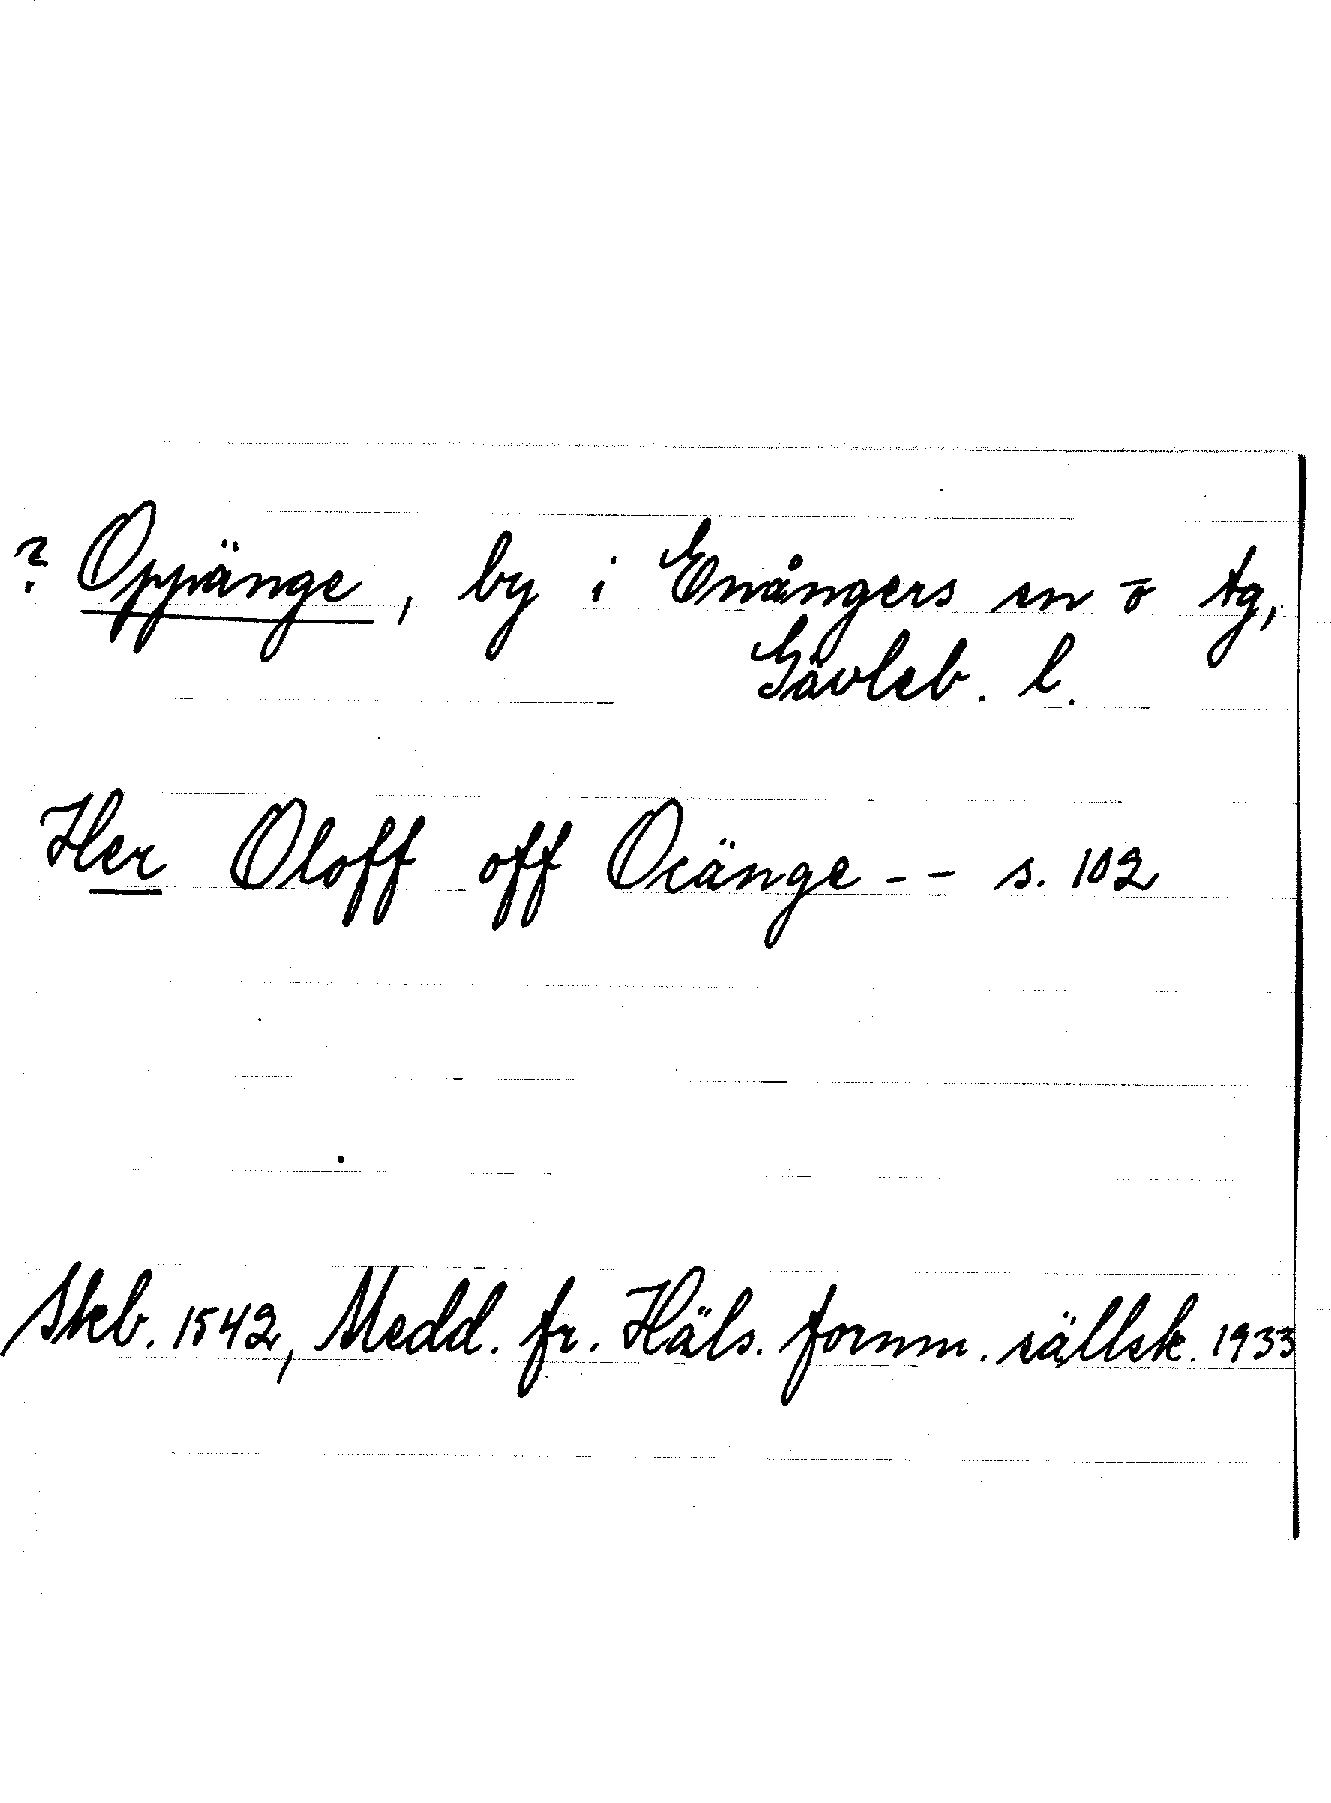 ? Oppänge, by i Enångers sn o tg,
Gävleb. l.
Her Oloff off Ocänge - - s. 102
Skb. 1542, Medd. fr. Häls. fornm. sällsk. 1933